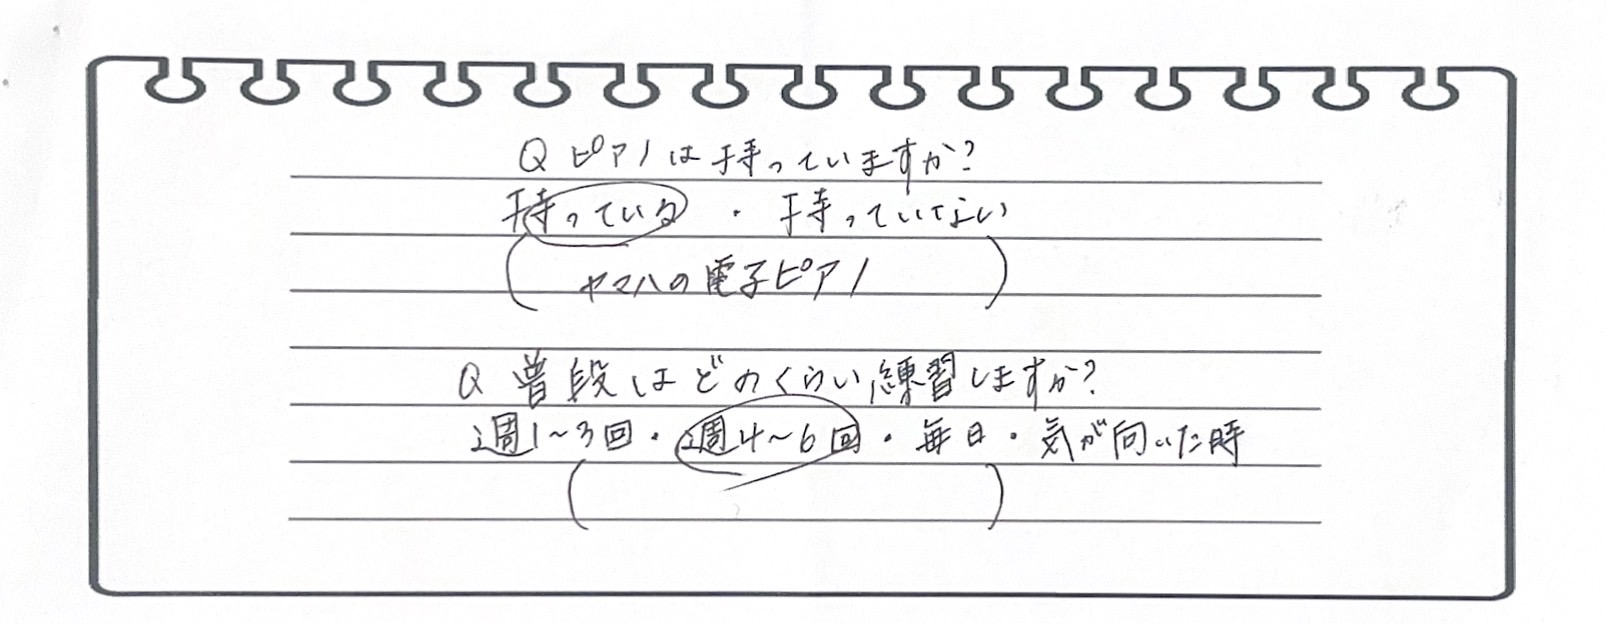 Q ピアノは持っていますか?
持っている ・ 持っていない
( ヤマハの電子ピアノ )
Q 普段はどのくらい練習しますか?
週1~3回・週4~6回・毎日・気が向いた時
( )